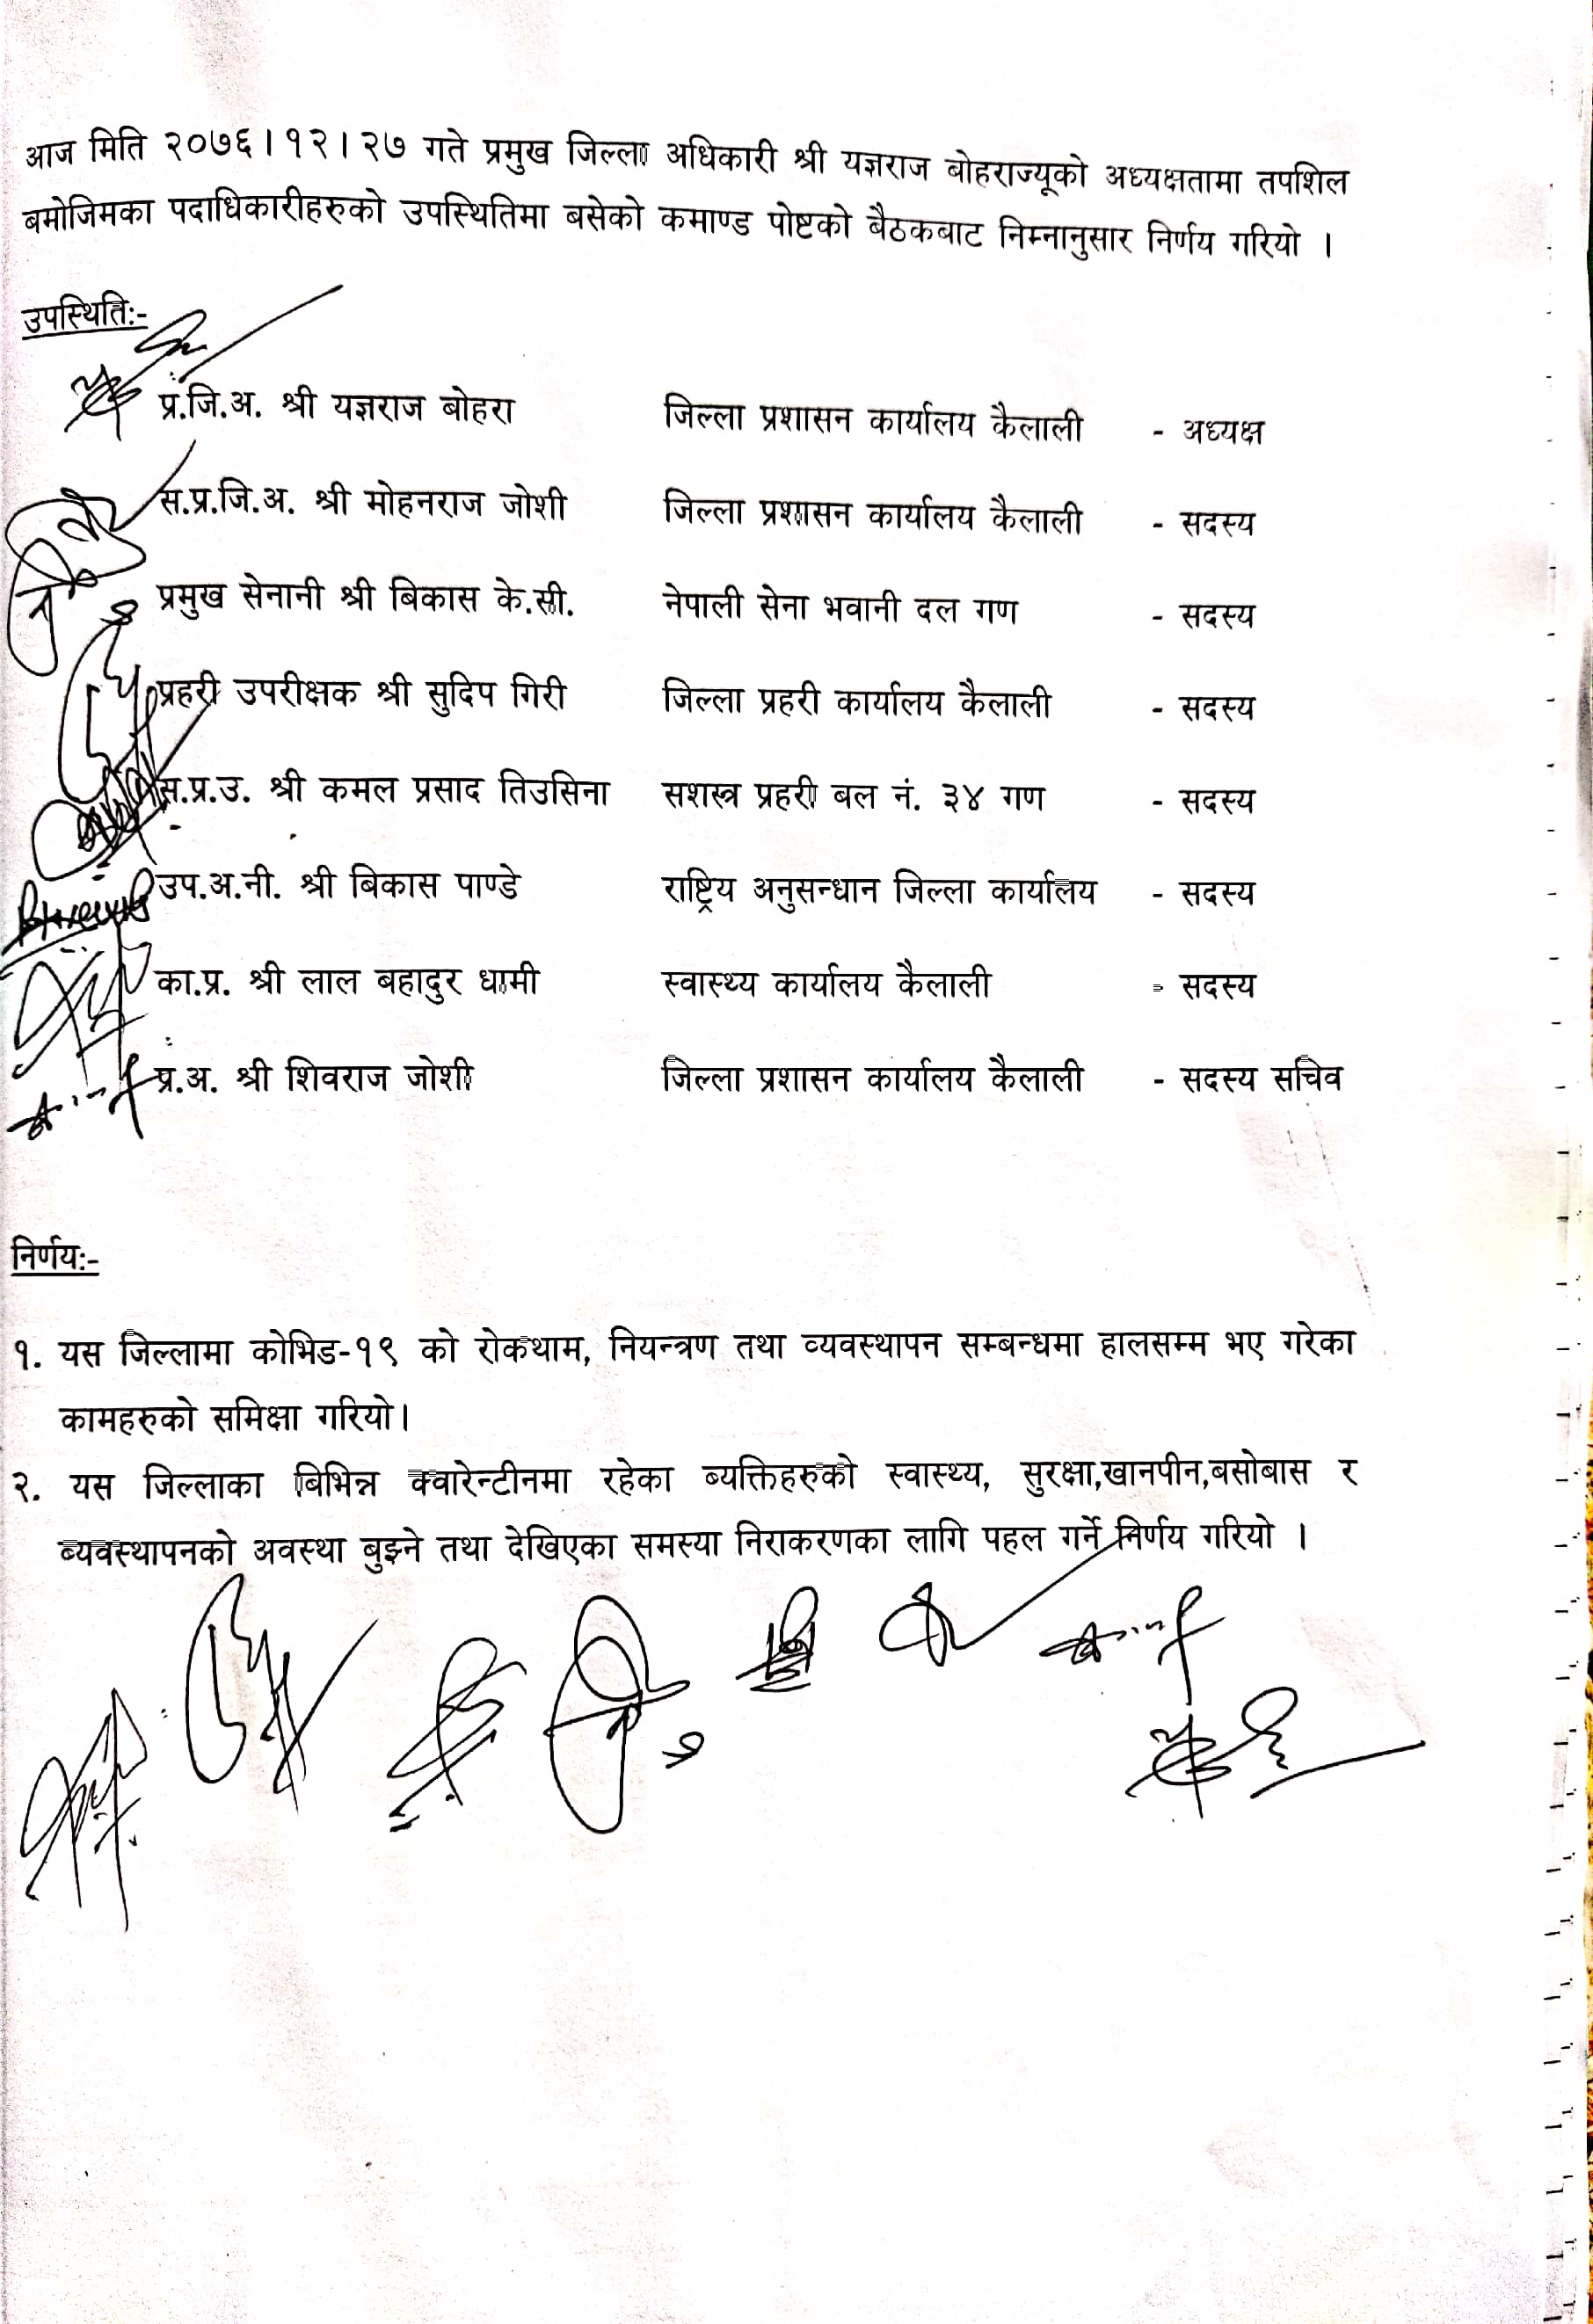 आज मिति २०७६।१२।२७ गते प्रमुख जिल्ला अधिकारी श्री यज्ञराज बोहराज्यूको अध्यक्षतामा तपशिल
बमोजिमका पदाधिकारीहरुको उपस्थितिमा बसेको कमाण्ड पोष्टको बैठकबाट निम्नानुसार निर्णय गरियो ।
उपस्थितिः-
प्र.जि.अ. श्री यज्ञराज बोहरा जिल्ला प्रशासन कार्यालय कैलाली - अध्यक्ष
स.प्र.जि.अ. श्री मोहनराज जोशी जिल्ला प्रशासन कार्यालय कैलाली - सदस्य
प्रमुख सेनानी श्री बिकास के.सी. नेपाली सेना भवानी दल गण - सदस्य
प्रहरी उपरीक्षक श्री सुदिप गिरी जिल्ला प्रहरी कार्यालय कैलाली - सदस्य
स.प्र.उ. श्री कमल प्रसाद तिउसिना सशस्त्र प्रहरी बल नं. ३४ गण - सदस्य
उप.अ.नी. श्री बिकास पाण्डे राष्ट्रिय अनुसन्धान जिल्ला कार्यालय - सदस्य
का.प्र. श्री लाल बहादुर धामी स्वास्थ्य कार्यालय कैलाली - सदस्य
प्र.अ. श्री शिवराज जोशी जिल्ला प्रशासन कार्यालय कैलाली - सदस्य सचिव
निर्णयः-
१. यस जिल्लामा कोभिड-१९ को रोकथाम, नियन्त्रण तथा व्यवस्थापन सम्बन्धमा हालसम्म भए गरेका
कामहरुको समिक्षा गरियो।
२. यस जिल्लाका बिभिन्न क्वारेन्टीनमा रहेका ब्यक्तिहरुको स्वास्थ्य, सुरक्षा,खानपीन,बसोबास र
ब्यवस्थापनको अवस्था बुझ्ने तथा देखिएका समस्या निराकरणका लागि पहल गर्ने निर्णय गरियो ।